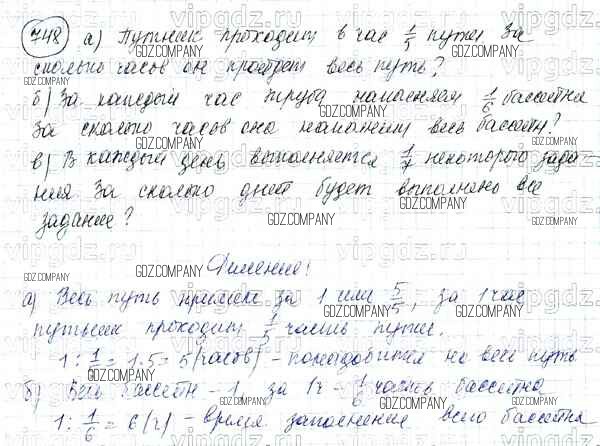 748 а) Путник проходит в час 1/5 пути. За
сколько часов он пройдет весь путь?
б) За каждый час труба наполняет 1/6 бассейна
За сколько часов она наполнит весь бассейн?
в) В каждый день выполняется 1/7 некоторого зада-
ния За сколько дней будет выполнено все
задание?
Решение:
а) Весь путь примем за 1 или 5/5, за 1 час
путник проходит 1/5 часть пути.
1 : 1/5 = 1·5 = 5 (часов) - понадобится на весь путь
б) Весь бассейн - 1, за 1ч - 1/6 часть бассейна
1 : 1/6 = 6 (ч) - время заполнения всего бассейна